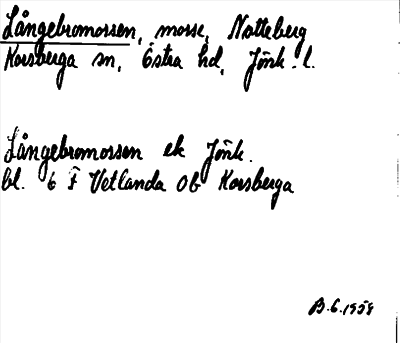 Långebromossen, mosse, Natteberg
Korsberga sn, Östra hd, Jönk. l.
Långebromossen ek Jönk.
bl. 6 F Vetlanda OB Korsberga
B.G. 1959